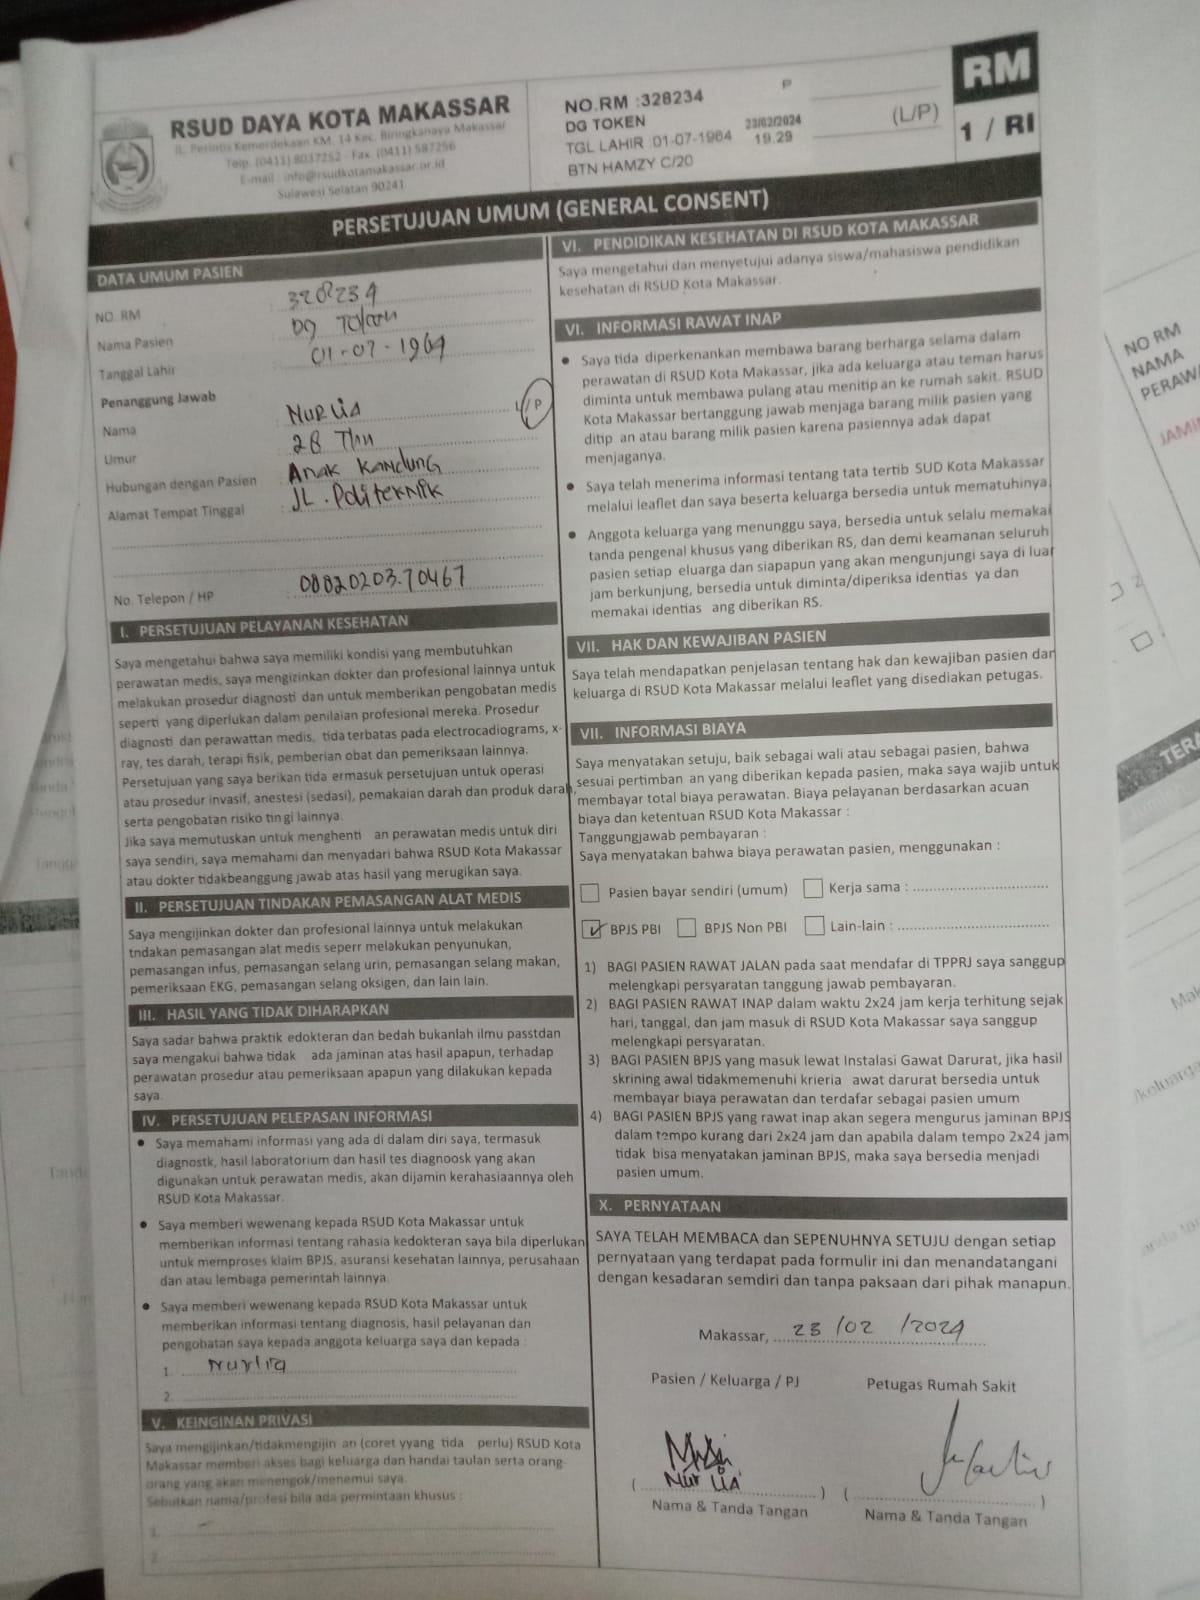 RSUD DAYA KOTA MAKASSAR
JL. Perintis Kemerdekaan KM. 14 Kec. Biringkanaya Makassar
Telp. (0411) 8037252 - Fax. (0411) 587256
E-mail : info@rsudkotamakassar.or.id
Sulawesi Selatan 90241
NO.RM :328234 P
DG TOKEN 23/02/2024
TGL LAHIR :01-07-1964 19.29
BTN HAMZY C/20
(L/P)
RM
1 / RI
PERSETUJUAN UMUM (GENERAL CONSENT)
DATA UMUM PASIEN
NO. RM : 328234
Nama Pasien : DG Token
Tanggal Lahir : 01-07-1964
Penanggung Jawab
Nama : NURLIA L/P
Umur : 28 Thn
Hubungan dengan Pasien : Anak Kandung
Alamat Tempat Tinggal : JL. Politeknik
No. Telepon / HP : 08820203.70467
I. PERSETUJUAN PELAYANAN KESEHATAN
Saya mengetahui bahwa saya memiliki kondisi yang membutuhkan
perawatan medis, saya mengizinkan dokter dan profesional lainnya untuk
melakukan prosedur diagnosti dan untuk memberikan pengobatan medis
seperti yang diperlukan dalam penilaian profesional mereka. Prosedur
diagnosti dan perawattan medis, tida terbatas pada electrocadiograms, x-
ray, tes darah, terapi fisik, pemberian obat dan pemeriksaan lainnya.
Persetujuan yang saya berikan tida ermasuk persetujuan untuk operasi
atau prosedur invasif, anestesi (sedasi), pemakaian darah dan produk darah,
serta pengobatan risiko tin gi lainnya.
Jika saya memutuskan untuk menghenti an perawatan medis untuk diri
saya sendiri, saya memahami dan menyadari bahwa RSUD Kota Makassar
atau dokter tidakbeanggung jawab atas hasil yang merugikan saya.
II. PERSETUJUAN TINDAKAN PEMASANGAN ALAT MEDIS
Saya mengijinkan dokter dan profesional lainnya untuk melakukan
tndakan pemasangan alat medis seperr melakukan penyunukan,
pemasangan infus, pemasangan selang urin, pemasangan selang makan,
pemeriksaan EKG, pemasangan selang oksigen, dan lain lain.
III. HASIL YANG TIDAK DIHARAPKAN
Saya sadar bahwa praktik edokteran dan bedah bukanlah ilmu passtdan
saya mengakui bahwa tidak ada jaminan atas hasil apapun, terhadap
perawatan prosedur atau pemeriksaan apapun yang dilakukan kepada
saya.
IV. PERSETUJUAN PELEPASAN INFORMASI
• Saya memahami informasi yang ada di dalam diri saya, termasuk
diagnostk, hasil laboratorium dan hasil tes diagnoosk yang akan
digunakan untuk perawatan medis, akan dijamin kerahasiaannya oleh
RSUD Kota Makassar.
• Saya memberi wewenang kepada RSUD Kota Makassar untuk
memberikan informasi tentang rahasia kedokteran saya bila diperlukan
untuk memproses klaim BPJS, asuransi kesehatan lainnya, perusahaan
dan atau lembaga pemerintah lainnya.
• Saya memberi wewenang kepada RSUD Kota Makassar untuk
memberikan informasi tentang diagnosis, hasil pelayanan dan
pengobatan saya kepada anggota keluarga saya dan kepada :
1. Nurlia
2.
V. KEINGINAN PRIVASI
Saya mengijinkan/tidakmengijin an (coret yyang tida perlu) RSUD Kota
Makassar memberi akses bagi keluarga dan handai taulan serta orang-
orang yang akan menengok/menemui saya.
Sebutkan nama/profesi bila ada permintaan khusus :
1.
2.
VI. PENDIDIKAN KESEHATAN DI RSUD KOTA MAKASSAR
Saya mengetahui dan menyetujui adanya siswa/mahasiswa pendidikan
kesehatan di RSUD Kota Makassar.
VI. INFORMASI RAWAT INAP
• Saya tida diperkenankan membawa barang berharga selama dalam
perawatan di RSUD Kota Makassar, jika ada keluarga atau teman harus
diminta untuk membawa pulang atau menitip an ke rumah sakit. RSUD
Kota Makassar bertanggung jawab menjaga barang milik pasien yang
ditip an atau barang milik pasien karena pasiennya adak dapat
menjaganya.
• Saya telah menerima informasi tentang tata tertib SUD Kota Makassar
melalui leaflet dan saya beserta keluarga bersedia untuk mematuhinya.
• Anggota keluarga yang menunggu saya, bersedia untuk selalu memakai
tanda pengenal khusus yang diberikan RS, dan demi keamanan seluruh
pasien setiap eluarga dan siapapun yang akan mengunjungi saya di luar
jam berkunjung, bersedia untuk diminta/diperiksa identias ya dan
memakai identias ang diberikan RS.
VII. HAK DAN KEWAJIBAN PASIEN
Saya telah mendapatkan penjelasan tentang hak dan kewajiban pasien dan
keluarga di RSUD Kota Makassar melalui leaflet yang disediakan petugas.
VII. INFORMASI BIAYA
Saya menyatakan setuju, baik sebagai wali atau sebagai pasien, bahwa
sesuai pertimban an yang diberikan kepada pasien, maka saya wajib untuk
membayar total biaya perawatan. Biaya pelayanan berdasarkan acuan
biaya dan ketentuan RSUD Kota Makassar :
Tanggungjawab pembayaran :
Saya menyatakan bahwa biaya perawatan pasien, menggunakan :
Pasien bayar sendiri (umum) Kerja sama :
BPJS PBI BPJS Non PBI Lain-lain :
1) BAGI PASIEN RAWAT JALAN pada saat mendafar di TPPRJ saya sanggup
melengkapi persyaratan tanggung jawab pembayaran.
2) BAGI PASIEN RAWAT INAP dalam waktu 2x24 jam kerja terhitung sejak
hari, tanggal, dan jam masuk di RSUD Kota Makassar saya sanggup
melengkapi persyaratan.
3) BAGI PASIEN BPJS yang masuk lewat Instalasi Gawat Darurat, jika hasil
skrining awal tidakmemenuhi krieria awat darurat bersedia untuk
membayar biaya perawatan dan terdafar sebagai pasien umum
4) BAGI PASIEN BPJS yang rawat inap akan segera mengurus jaminan BPJS
dalam tempo kurang dari 2x24 jam dan apabila dalam tempo 2x24 jam
tidak bisa menyatakan jaminan BPJS, maka saya bersedia menjadi
pasien umum.
X. PERNYATAAN
SAYA TELAH MEMBACA dan SEPENUHNYA SETUJU dengan setiap
pernyataan yang terdapat pada formulir ini dan menandatangani
dengan kesadaran semdiri dan tanpa paksaan dari pihak manapun.
Makassar, 23/02/2024
Pasien / Keluarga / PJ Petugas Rumah Sakit
( Nur Lia ) ( )
Nama & Tanda Tangan Nama & Tanda Tangan
NO RM
NAMA